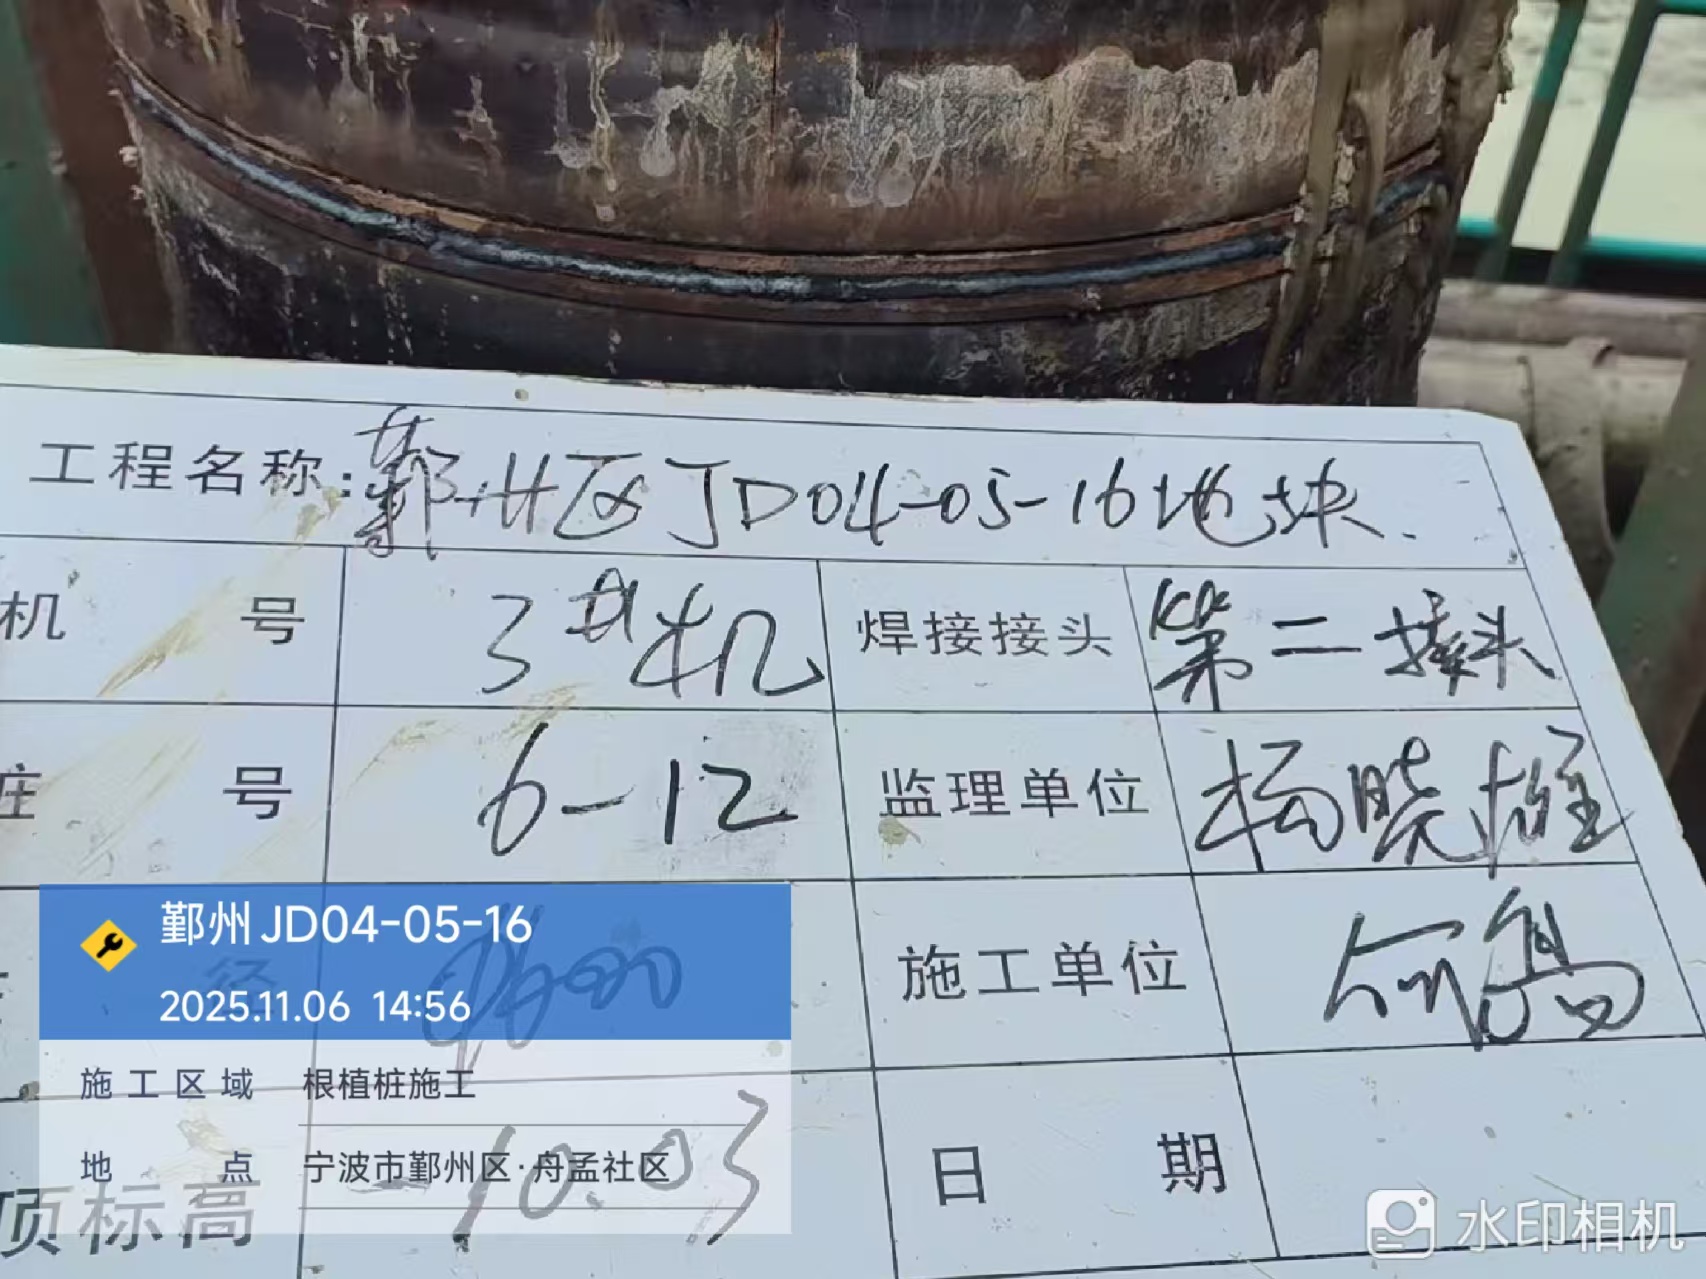 工程名称:鄞州区JD04-05-16地块.
机 号 3#机 焊接接头 第二接头
桩 号 6-12 监理单位 杨晓雄
径 施工单位
顶标高 -10.03 日 期
鄞州JD04-05-16
2025.11.06 14:56
施工区域 根植桩施工
地 点 宁波市鄞州区·舟孟社区
水印相机